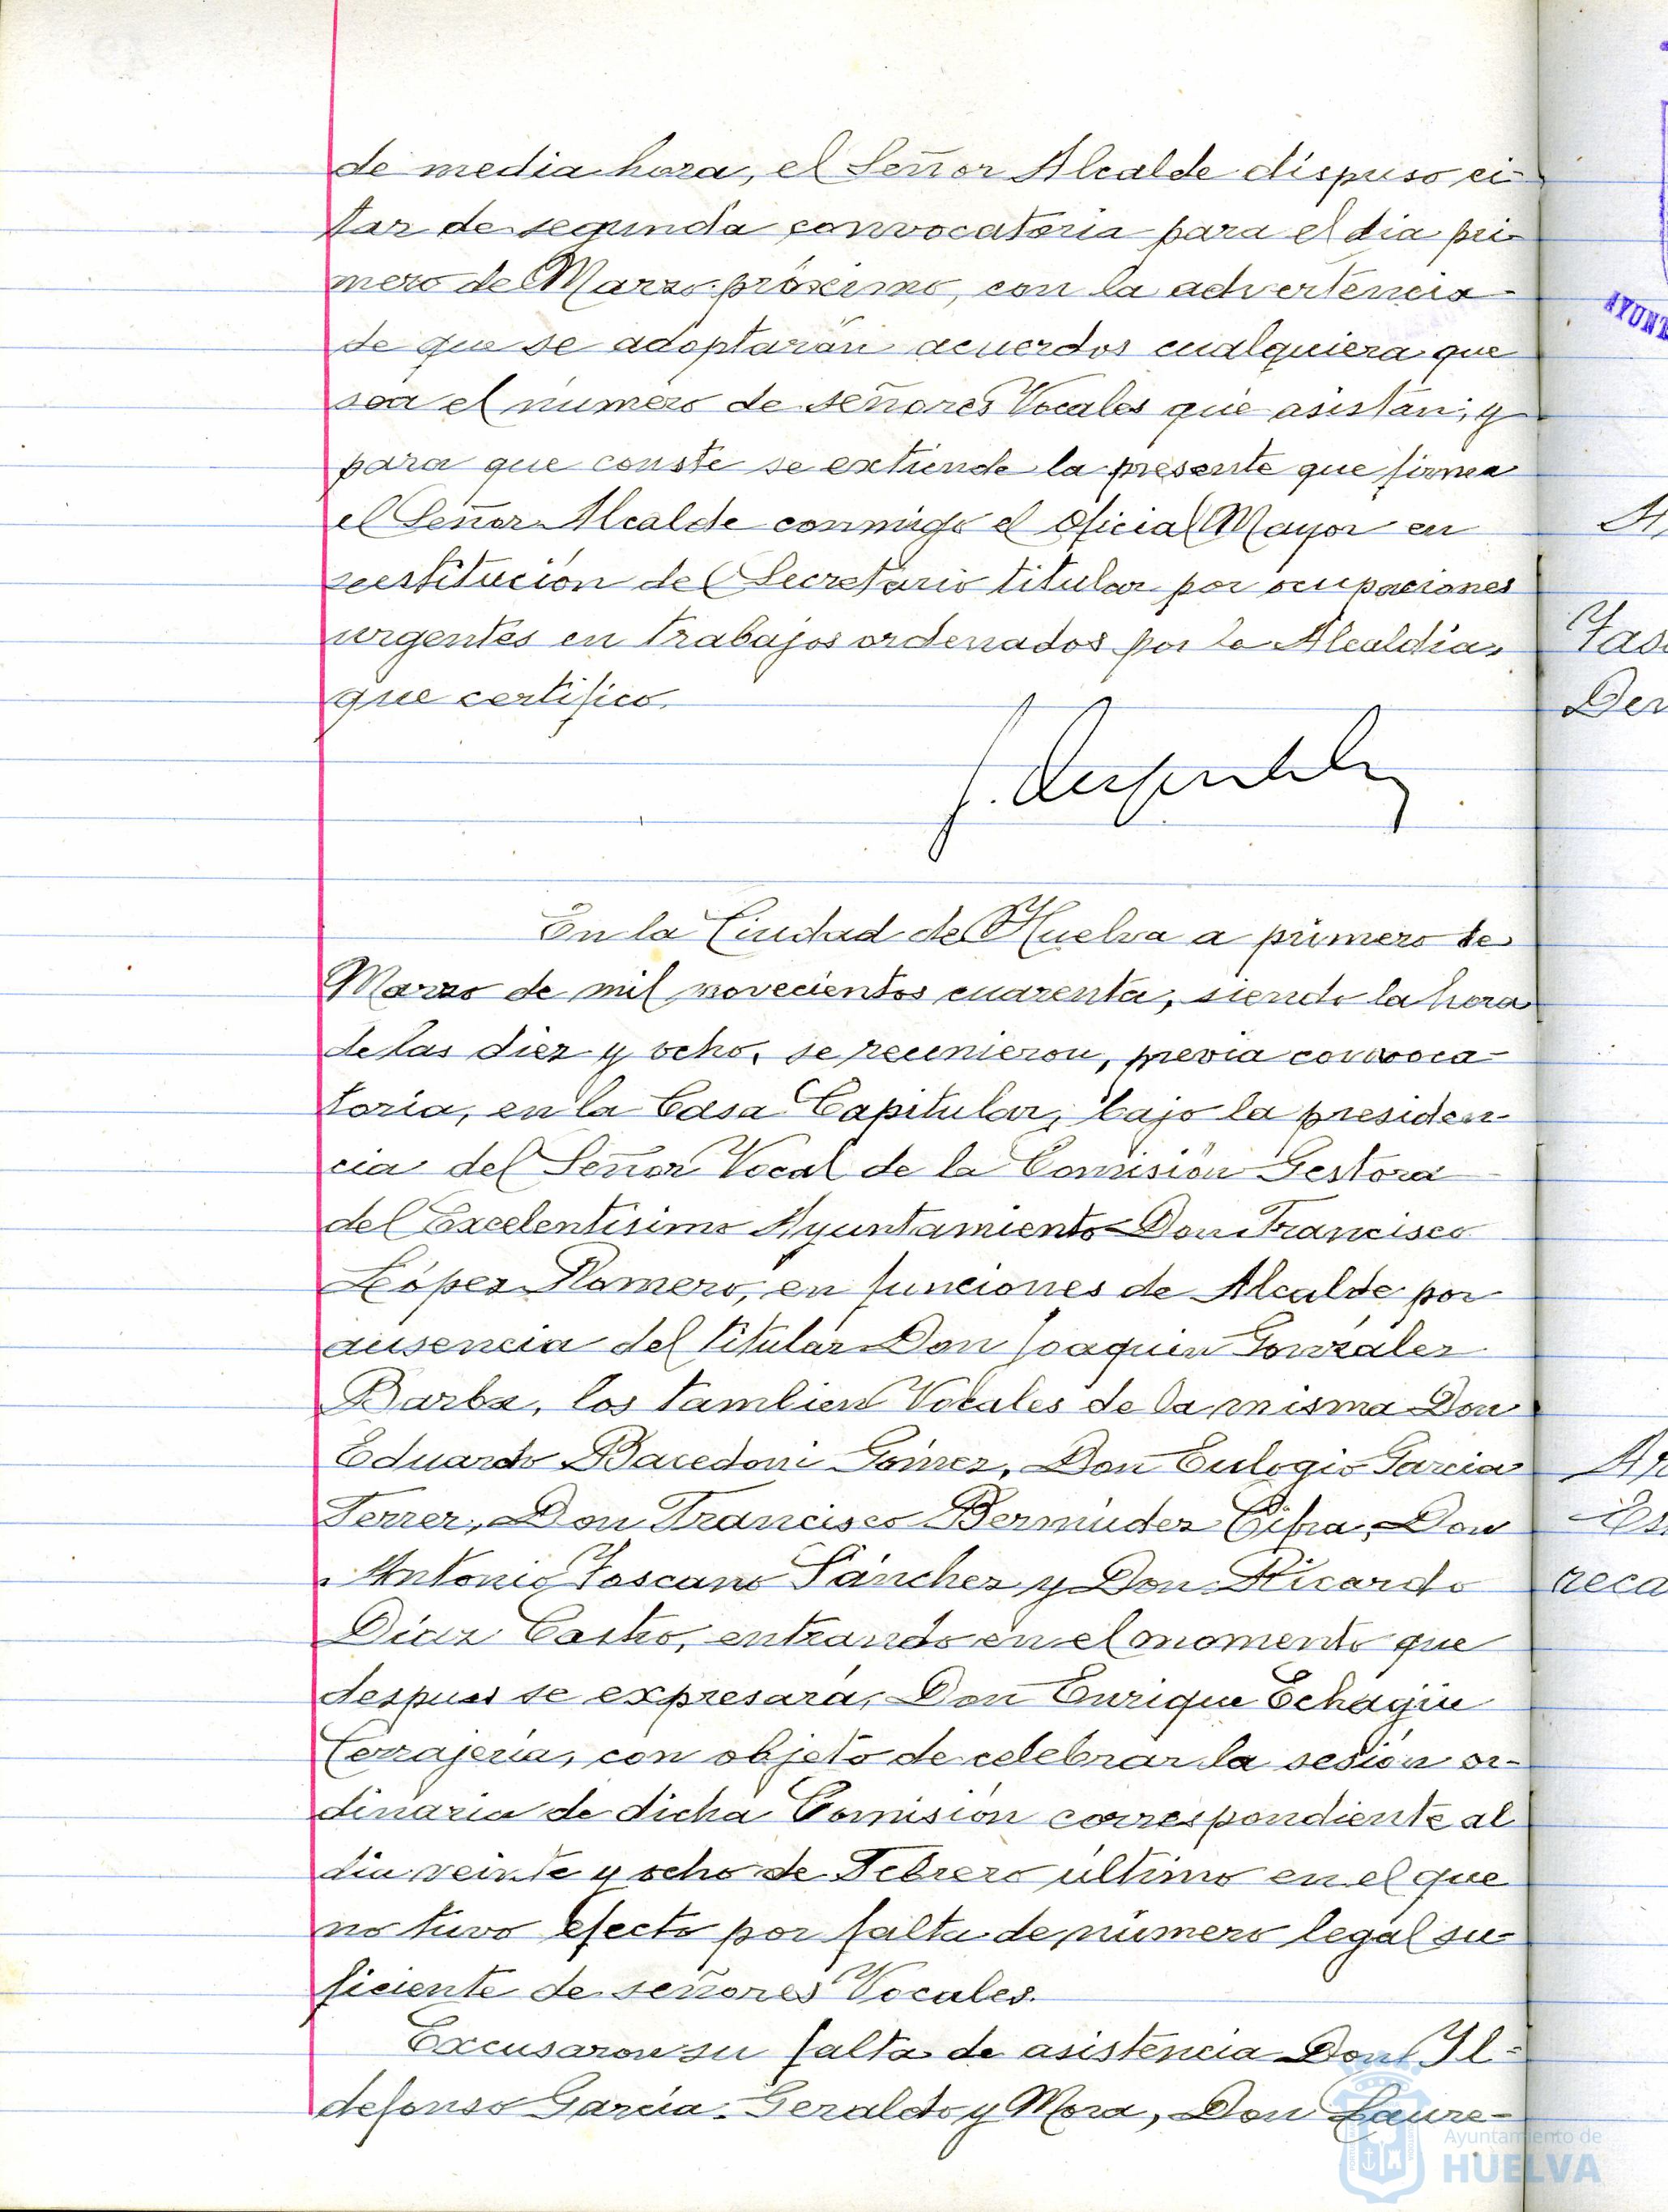 de media hora, el Señor Alcalde dispuso ci-
tar de segunda convocatoria para el dia pri-
mero de Marzo próximo, con la advertencia
de que se adoptarán acuerdos cualquiera que
sea el número de señores Vocales que asistan; y
para que conste se extiende la presente que firma
el Señor Alcalde conmigo el Oficial Mayor en
sustitución del Secretario titular por ocupaciones
urgentes en trabajos ordenados por la Alcaldía,
que certifico.
En la Ciudad de Huelva a primero de
Marzo de mil novecientos cuarenta, siendo la hora
de las diez y ocho, se reunieron, previa convoca-
toria, en la Casa Capitular, bajo la presiden-
cia del Señor Vocal de la Comisión Gestora
del Excelentísimo Ayuntamiento Don Francisco
López Romero, en funciones de Alcalde por
ausencia del titular Don Joaquin González
Barba, los tambien Vocales de la misma Don
Eduardo Bacedoni Gómez, Don Eulogio Garcia
Ferrer, Don Francisco Bermúdez Cifra, Don
Antonio Toscano Sánchez y Don Ricardo
Díaz Castro, entrando en el momento que
despues se expresará, Don Enrique Echagüe
Cerrajería, con objeto de celebrar la sesión or-
dinaria de dicha Comisión correspondiente al
dia veinte y ocho de Febrero último en el que
no tuvo efecto por falta de número legal su-
ficiente de señores Vocales.
Excusaron su falta de asistencia Don Il-
defonso García-Geraldo y Mora, Don Laure-
AYUNT
Fas
Der
Ar
Es
reca
Ayuntamiento de
HUELVA